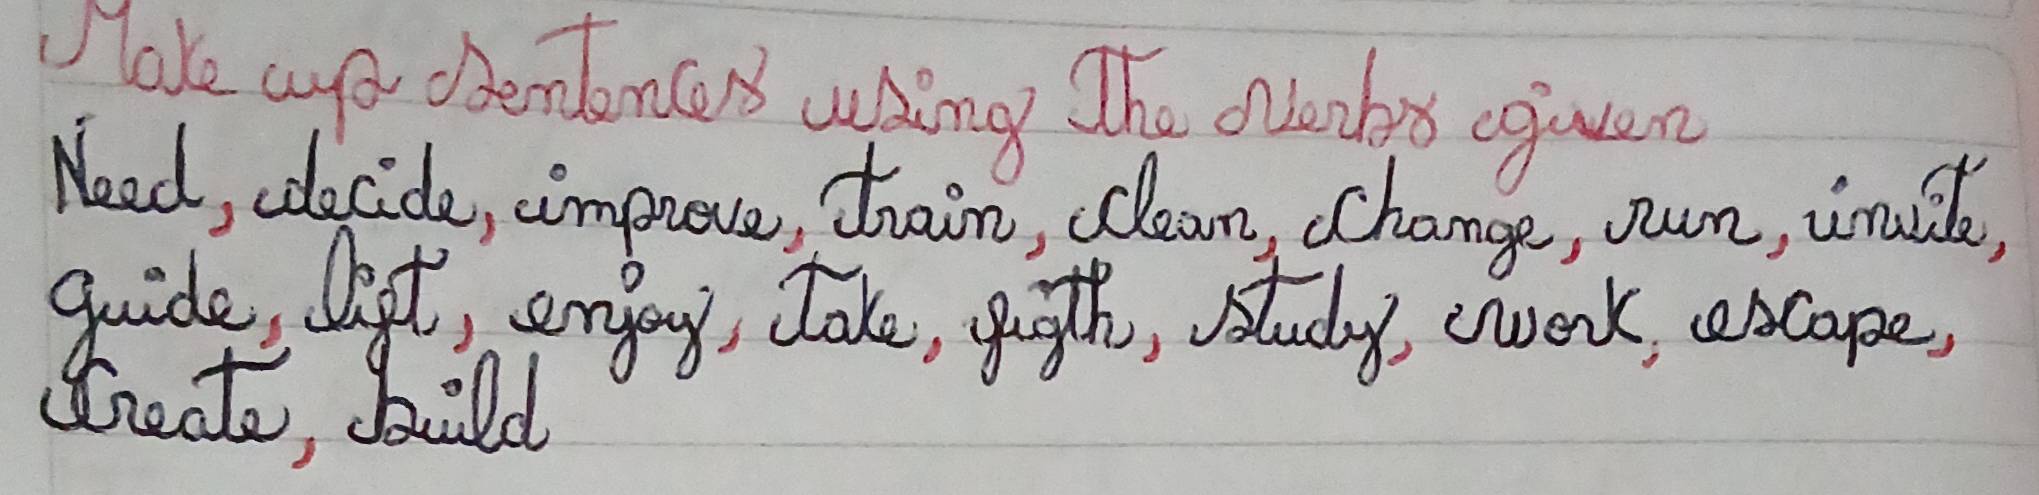 Make up sentences using The verbs given
Need, decide, improve, train, clean, change, run, invite,
guide, lift, enjoy, take, figth, study, work, escape,
create, build